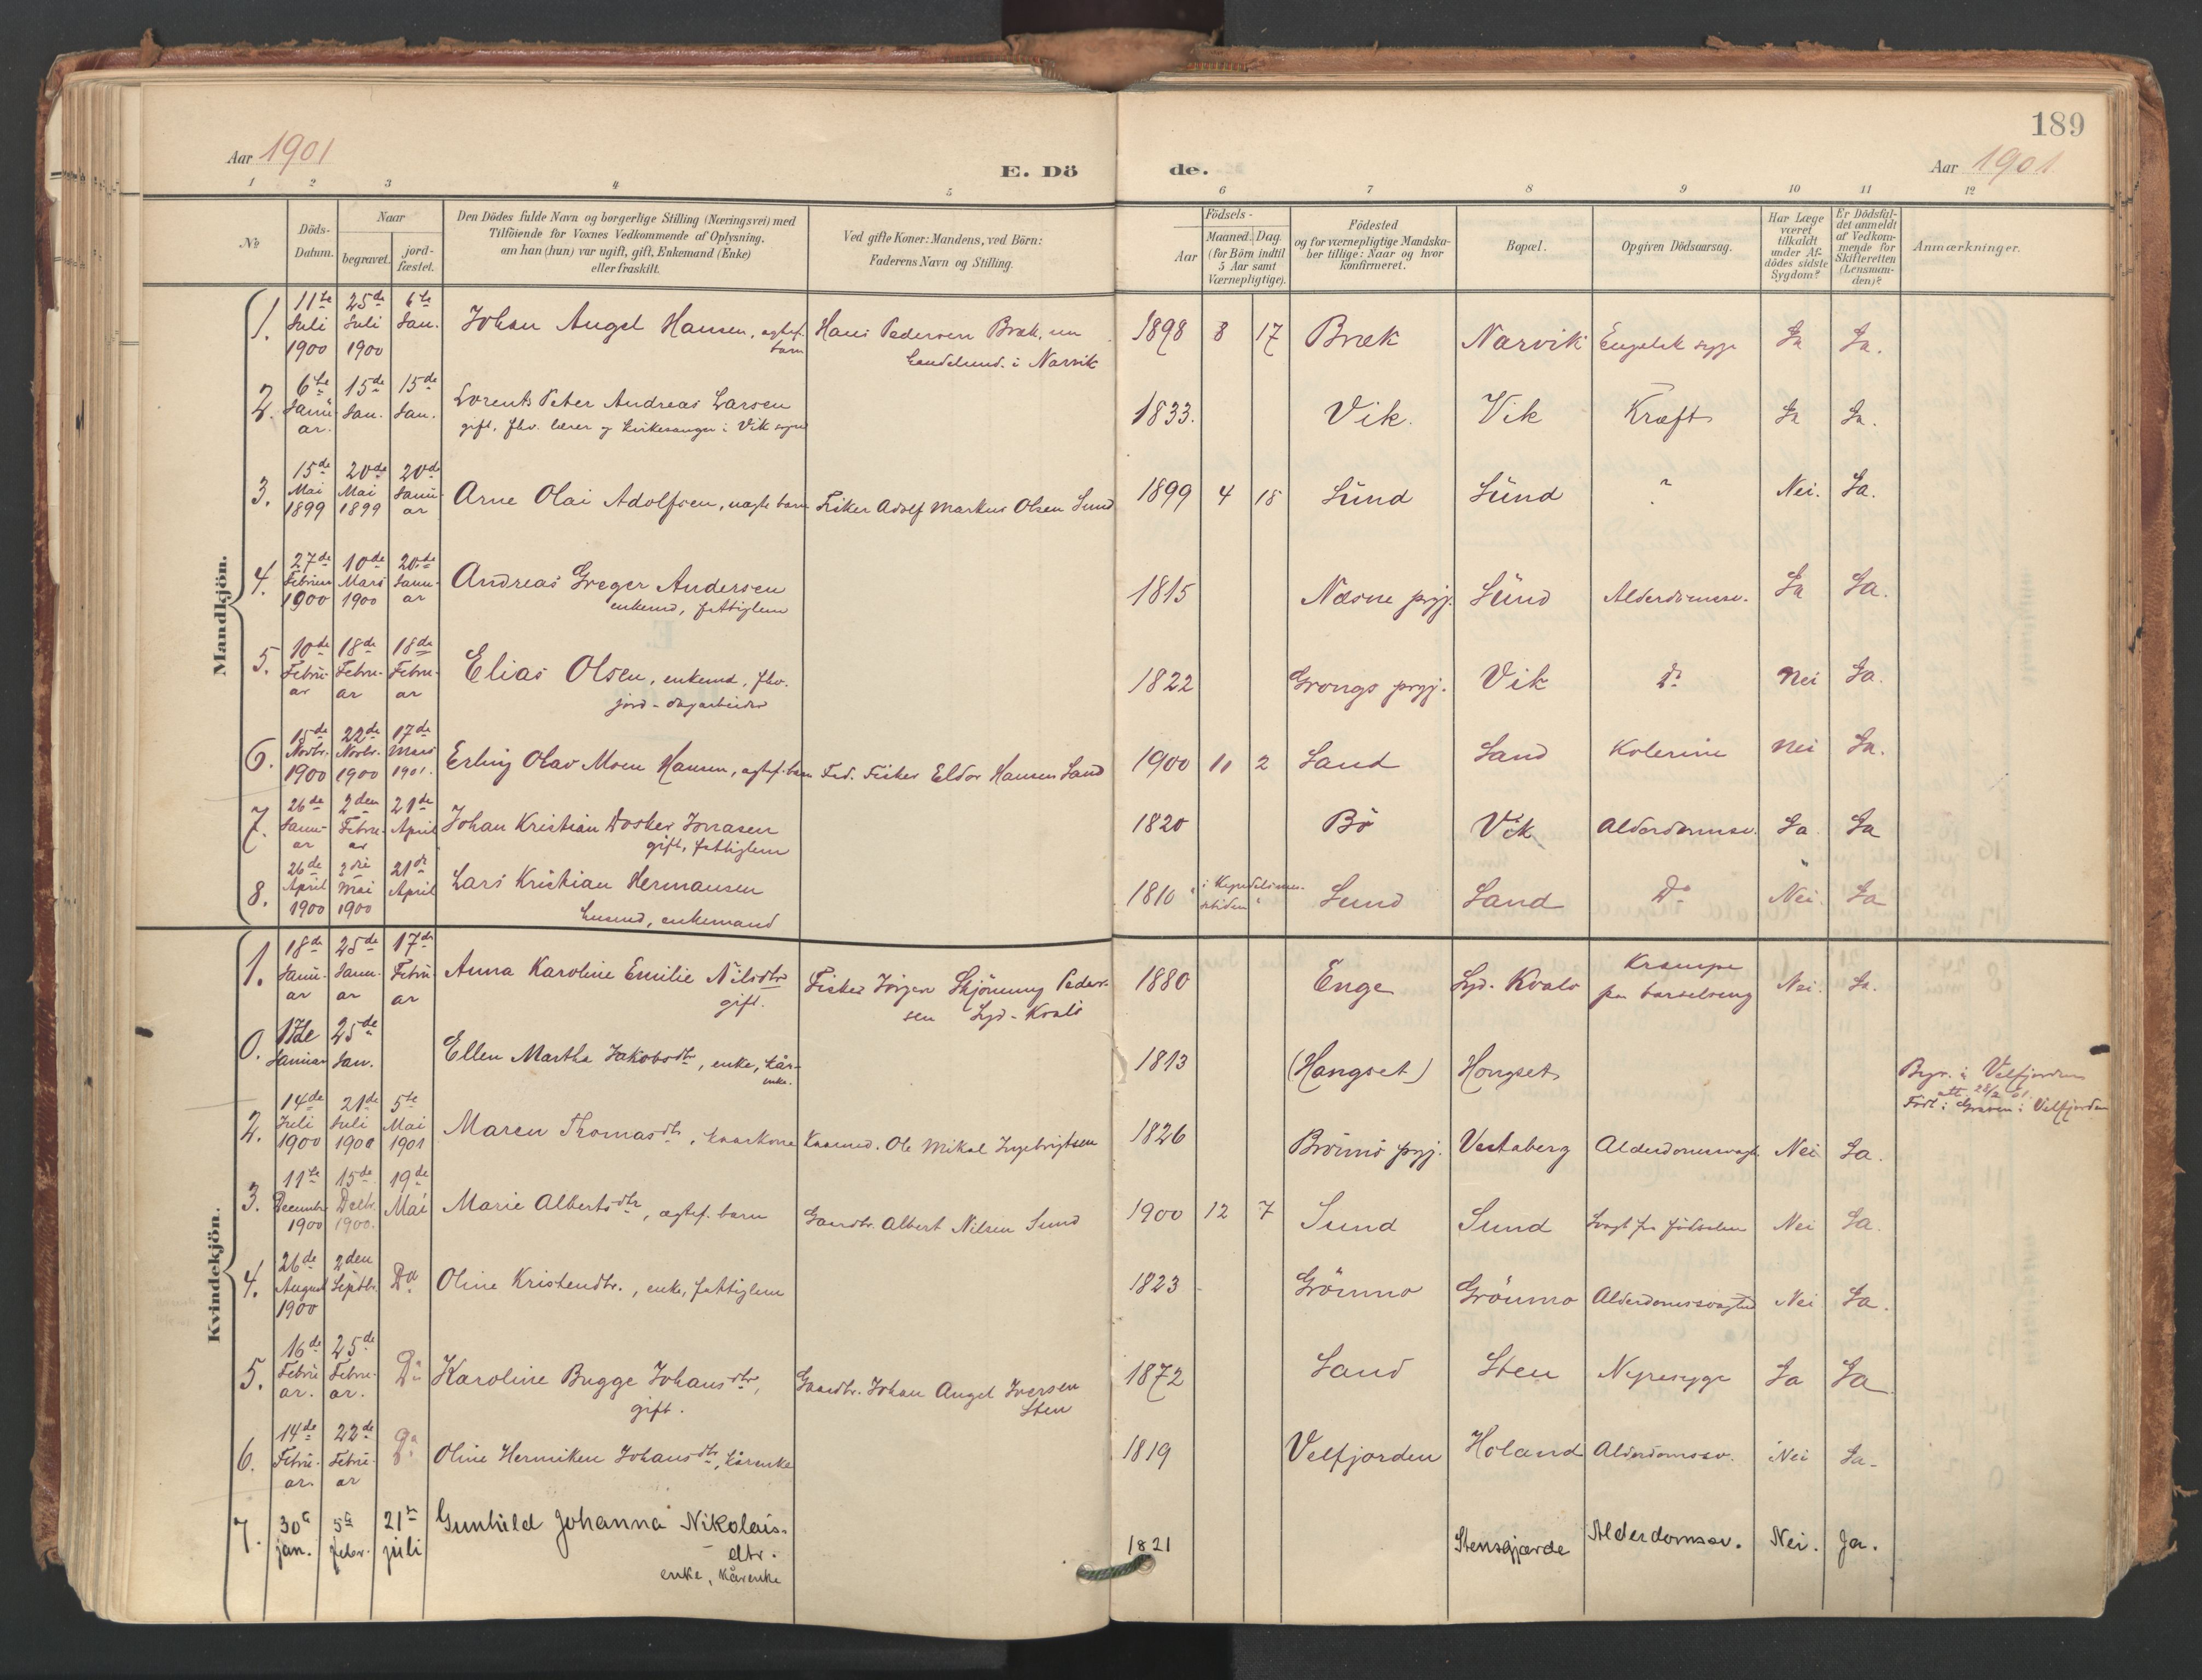 189
Aar 1901
E. Dö
de.
Aar 1901
1 2 3 4 5 6 7 8 9 10 11 12
No
Döds-Datum.
Naar
begravet.
jord-fæstet.
Den Dödes fulde Navn og borgerlige Stilling (Næringsvei) med
Tilföiende for Voxnes Vedkommende af Oplysning,
om han (hun) var ugift, gift, Enkemand (Enke)
eller fraskilt.
Ved gifte Koner: Mandens, ved Börn:
Faderens Navn og Stilling.
Födsels-
Aar
Maaned. Dag.
(for Börn indtil
5 Aar samt
Værnepligtige).
Födested
og for værnepligtige Mandska-
ber tillige: Naar og hvor
konfirmeret.
Bopæl.
Opgiven Dödsaarsag.
Har Læge
været
tilkaldt
under Af-
dödes sidste
Sygdom?
Er Dödsfal-
det anmeldt
af Vedkom-
mende for
Skifteretten
(Lensman-
den)?
Anmærkninger.
Mandkjön.
1. 11te Juli 1900 25de Juli 1900 6te Jan. Johan Angel Hansen, ægtef. barn Hans Pedersen Bræk, en handelsmd. i Narvik 1898 8 17 Bræk Narvik Engelsk syge Ja Ja.
2. 6te Januar. 15de Jan. 15de Jan. Lorents Peter Andreas Larsen
gift, fhv. lærer og kirkesanger i Vik sogn 1833. Vik. Vik Kræft Ja Ja.
3. 15de Mai 1899 20de Mai 1899 20de Januar Arne Olai Adolfsen, uægte barn Fisker Adolf Markus Olsen Sund 1899 4 18 Sund Sund ? Nei. Ja.
4. 27de Februar 1900 10de Mars 1900 20de Januar Andreas Greger Andersen
enkemd, fattiglem 1815 Næsne prgj. Sund Alderdomssv. Ja Ja.
5. 10de Februar 18de Februar 18de Februar Elias Olsen, enkemd, fhv.
jord-dagarbeider 1822 Grongs prgj. Vik Do Nei Ja.
6. 15de Novbr. 1900 22de Novbr. 1900 17de Mars 1901. Erling Olav Moen Hansen, ægtef. barn Fad. Fisker Eldor Hansen Sand 1900 11 2 Sand Sand Kolerine Nei Ja.
7. 26de Januar 2den Februar 21de April Johan Kristian Dosker Jonasen
gift, fattiglem 1820 Bö Vik Alderdomssv. Ja Ja
8. 26de April 1900 3die Mai 1900 21de April Lars Kristian Hermansen
Husmd, enkemand 1810 Sund Sand Do Nei. Ja
Kvindekjön.
1. 18de Januar 25de Januar 17de Februar Anna Karoline Emilie Nilsdtr
gift. Fisker Jörgen Skjönning Pedersen Syd-Kvalö 1880 Enge Syd-Kvalö Krampe
paa barselseng Nei. Ja.
0. 17de Januar 25de Jan. Ellen Martha Jakobsdtr, enke, kårenke. 1813 (Hangset) Hongset Begr. i Velfjorden
att. 28/2 01.
Födt i Graven i Velfjorden
2. 14de Juli 1900 21de Juli 1900 5te Mai 1901 Maren Thomasdtr, kaarkone Kaarmd. Ole Mikal Ingebrigtsen 1826 Brönnö prgj. Vestaberg Alderdomssvagh. Nei Ja.
3. 11te Decembr 1900 15de Decbr. 1900. 19de Mai Marie Albertsdtr, ægtef. barn Gaardbr. Albert Nilsen Sund 1900 12 7 Sund Sund Svagt fra födselen Nei Ja.
4. 26de August 1900 2den Septbr. Do Oline Kristendtr., enke, fattiglem 1823 Grönmo Grönmo Alderdomssvaghed Nei Ja.
5. 16de Februar. 25de Februar. Do Karoline Bugge Johansdtr,
gift. Gaardbr. Johan Angel Iversen
Sten 1872 Sand Sten Nyresyge Ja Ja
6. 14de Februar. 22de Februar Do Oline Henniken Johansdtr, kårenke 1819 Velfjorden Höland Alderdomssv. Nei Ja.
7. 30d jan. 5d febr. 21de juli Gunhild Johanna Nikolais-
dtr.
enke, kårenke 1821 Stensgjærde Alderdomssv. Nei. Ja.